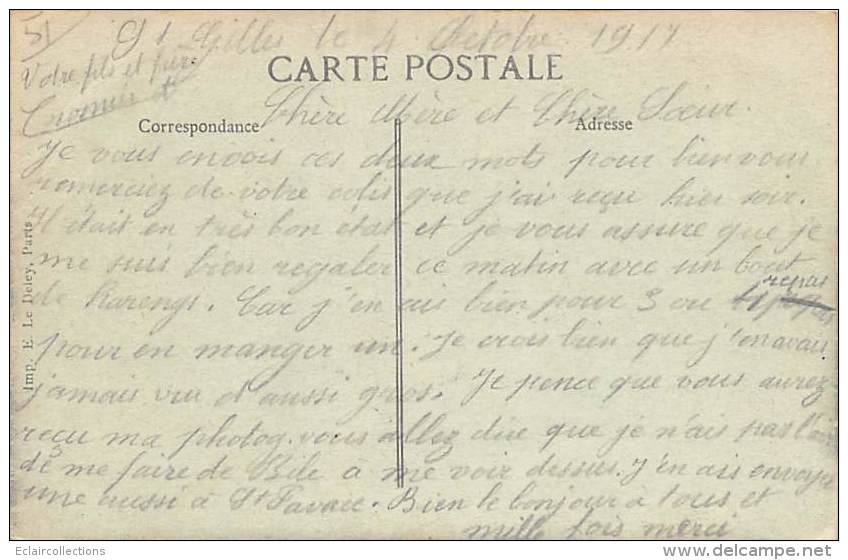 51
St Gilles le 4 Octobre 1917
Votre fils et frère
CARTE POSTALE
Correspondance
Adresse
Chère Mère et Chère Soeur.
Je vous envois ces deux mots pour bien vous
remerciez de votre colis que j'ai reçu hier soir.
Il était en très bon état et je vous assure que je
me suis bien regaler ce matin avec un bout
de harengs. Car j'en ais bien pour 3 ou repas
pour en manger un. Je crois bien que j'en avais
jamais vu d'aussi gros. Je pence que vous aurez
reçu ma photog. vous allez dire que je n'ais pas l'air
de me faire de Bile à me voir dessus. J'en ais envoyer
une aussi à St Bien le bonjour à tous et
mille fois merci
Imp. E. Le Deley, Paris
Eclaircollections
delcampe.net